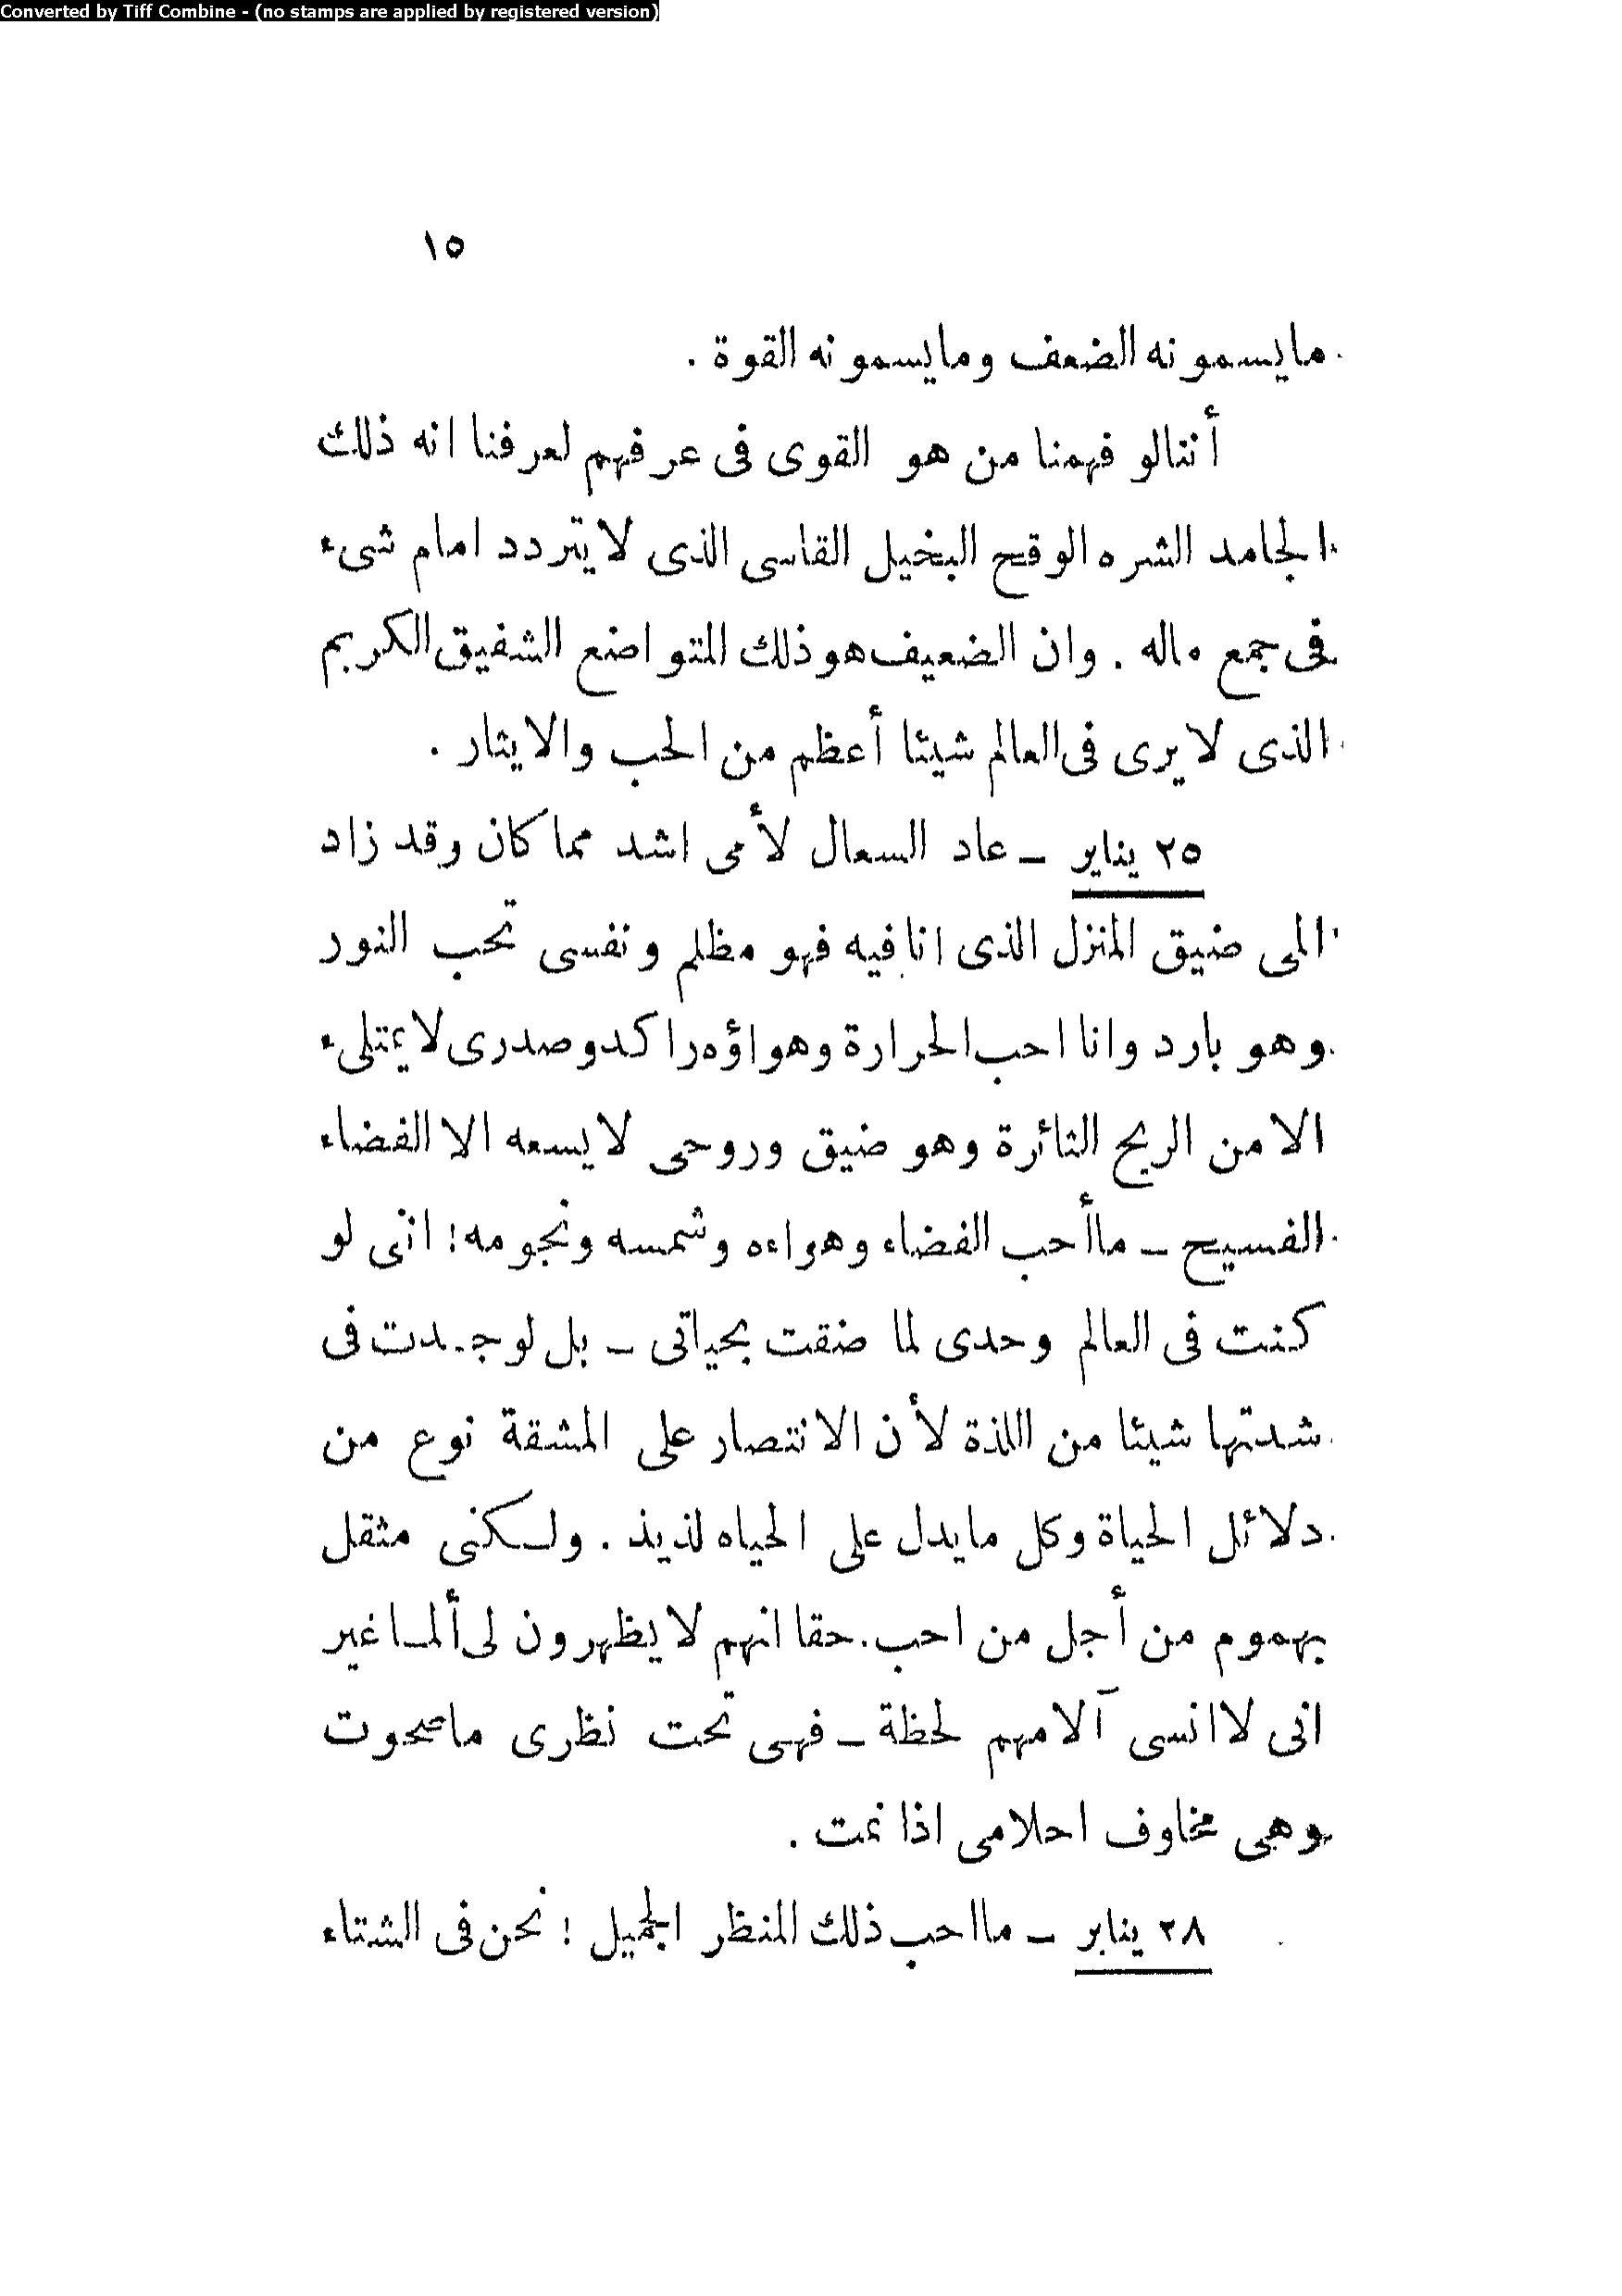 Converted by Tiff Combine - (no stamps are applied by registered version)
١٥
مايسمونه الضعف ومايسمونه القوة .
أننالو فهمنا من هو القوى فى عرفهم لعرفنا انه ذلك
الجامد الشره الوقح البخيل القاسى الذى لايتردد امام شىء
فى جمع ماله . وان الضعيف هو ذلك المتواضع الشفيق الكريم
الذى لايرى فى العالم شيئا أعظم من الحب والايثار .
٢٥ يناير – عاد السعال لأمى اشد مما كان وقد زاد
المى ضيق المنزل الذى انا فيه فهو مظلم ونفسى تحب النور
وهو بارد وانا احب الحرارة وهواؤه راكد وصدرى لايمتلىء
الا من الريح الثائرة وهو ضيق وروحى لايسعه الا الفضاء
الفسيح – ماأحب الفضاء وهواءه وشمسه ونجومه! انى لو
كنت فى العالم وحدى لما ضقت بحياتى – بل لوجدت فى
شدتها شيئا من اللذة لأن الانتصار على المشقة نوع من
دلائل الحياة وكل مايدل على الحياه لذيذ . ولكنى مثقل
بهموم من أجل من احب. حقا انهم لايظهرون لى ألما غير
انى لاانسى آلامهم لحظة – فهى تحت نظرى ماصحوت
وهى مخاوف احلامى اذا نمت .
٢٨ يناير – مااحب ذلك المنظر الجميل ! نحن فى الشتاء